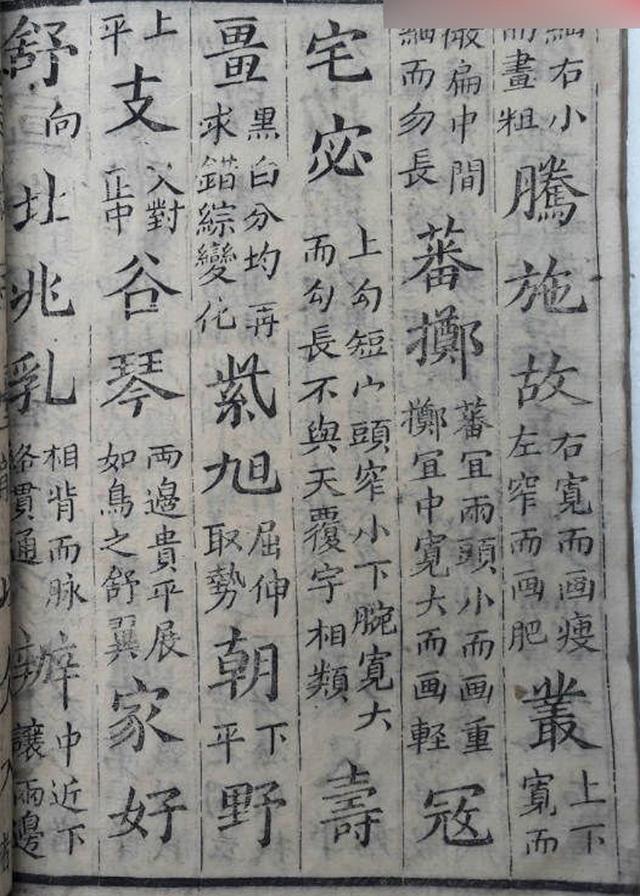 細右小而畫粗騰施故右寬而画瘦左窄而画肥叢上下寬而
微扁中間細而勿長蕃擲蕃冝兩頭小而画重擲冝中寬大而画輕冦
宅宓上勾短宀頭窄小下腕寬大而勾長不與天覆字相類壽
畺黑白分均再求錯綜變化紫旭屈伸取勢朝下平野
上平支乂對正中谷琴両邊貴平展如鳥之舒翼家好
舒向北兆乳相背而脉絡貫通辦中近下讓兩邊